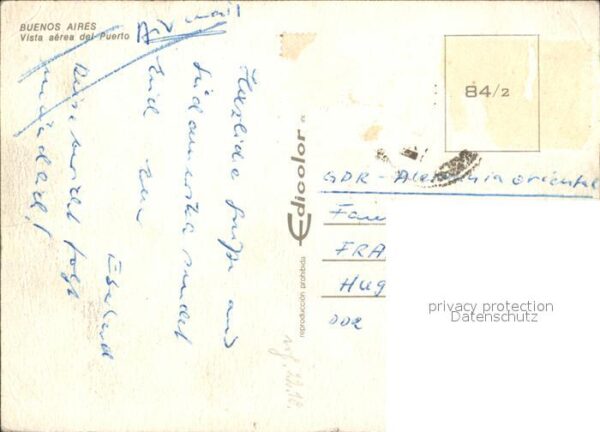 BUENOS AIRES
Vista aérea del Puerto
Air mail
Herzliche Grüße aus
Südamerika sendet
Euch Euer
Eberhard
Reisebericht folgt
mündlich!
Edicolor
reproducción prohibida
84/2
GDR - Alemania oriental
Fam
FRA
Hug
002
privacy protection
Datenschutz